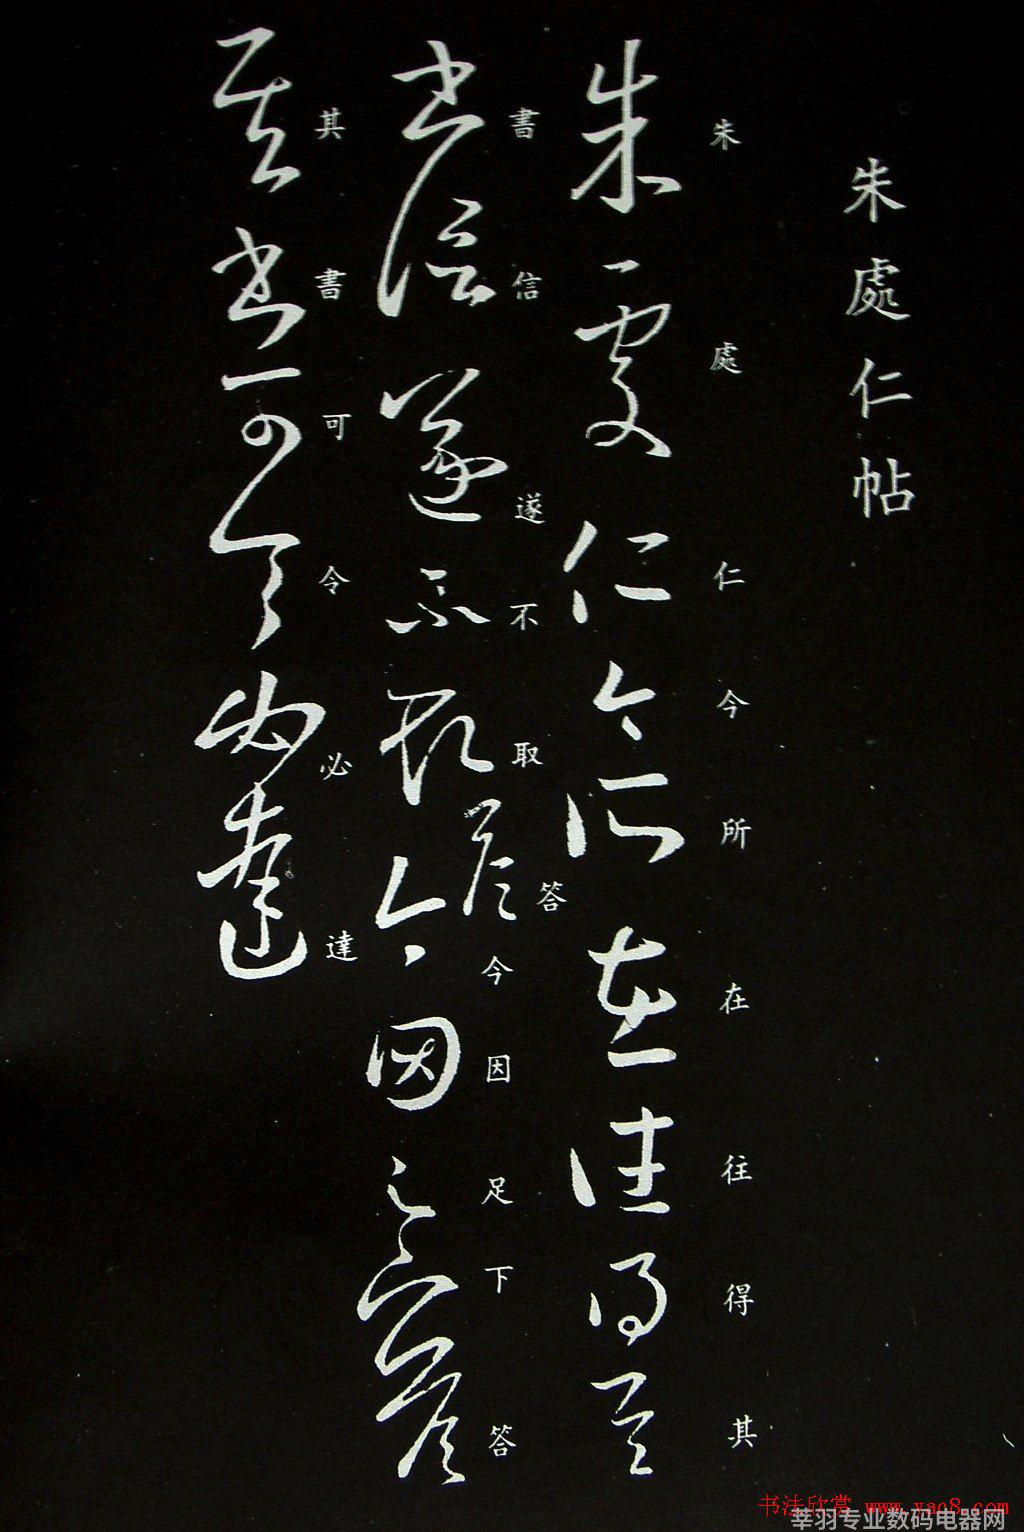 朱處仁帖
朱處仁今所在往得其
書信遂不取答今因足下答
其書可令必達
书法欣赏 www.yac8.com
莘羽专业数码电器网